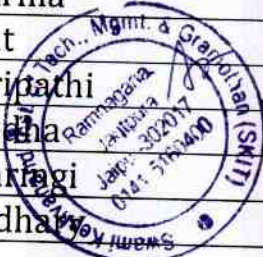 rma
t
ripathi
dha
aringi
dhary
Swami Keshvanand Instt. of Tech., Mgmt. & Gramothan (SKIT)
Ramnagaria
Jagatpura
Jaipur-302017
0141-5160400